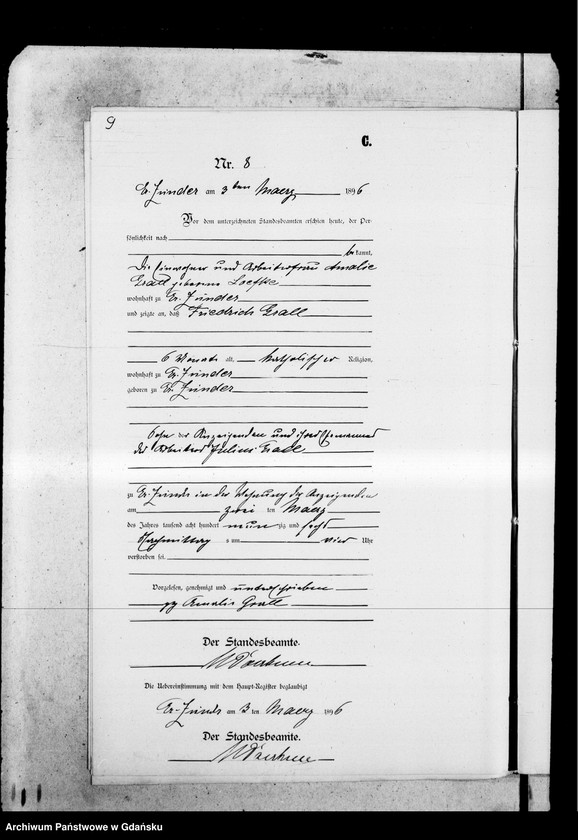 9
C.
Nr. 8
Gr. Zünder am 3 ten Maerz 1896
Vor dem unterzeichneten Standesbeamten erschien heute, der Per-
sönlichkeit nach
bekannt,
die Einwohner und Arbeiterfrau Amalie
Grall geborene
wohnhaft zu Gr. Zünder
und zeigte an, daß Friedrich Grall
6 Monate alt, katholischer Religion,
wohnhaft zu Gr. Zünder
geboren zu Gr. Zünder
Sohn der Anzeigenden und ihres Ehemannes
des Arbeiters Julius Grall
zu Gr. Zünder in der Wohnung der Anzeigenden
am zwei ten Maerz
des Jahres tausend acht hundert neun zig und sechs
Nachmittags um vier Uhr
verstorben sei.
Vorgelesen, genehmigt und unterschrieben
gz Amalie Grall
Der Standesbeamte.
Die Uebereinstimmung mit dem Haupt-Register beglaubigt
Gr. Zünder am 3 ten Maerz 1896
Der Standesbeamte.
Archiwum Państwowe w Gdańsku